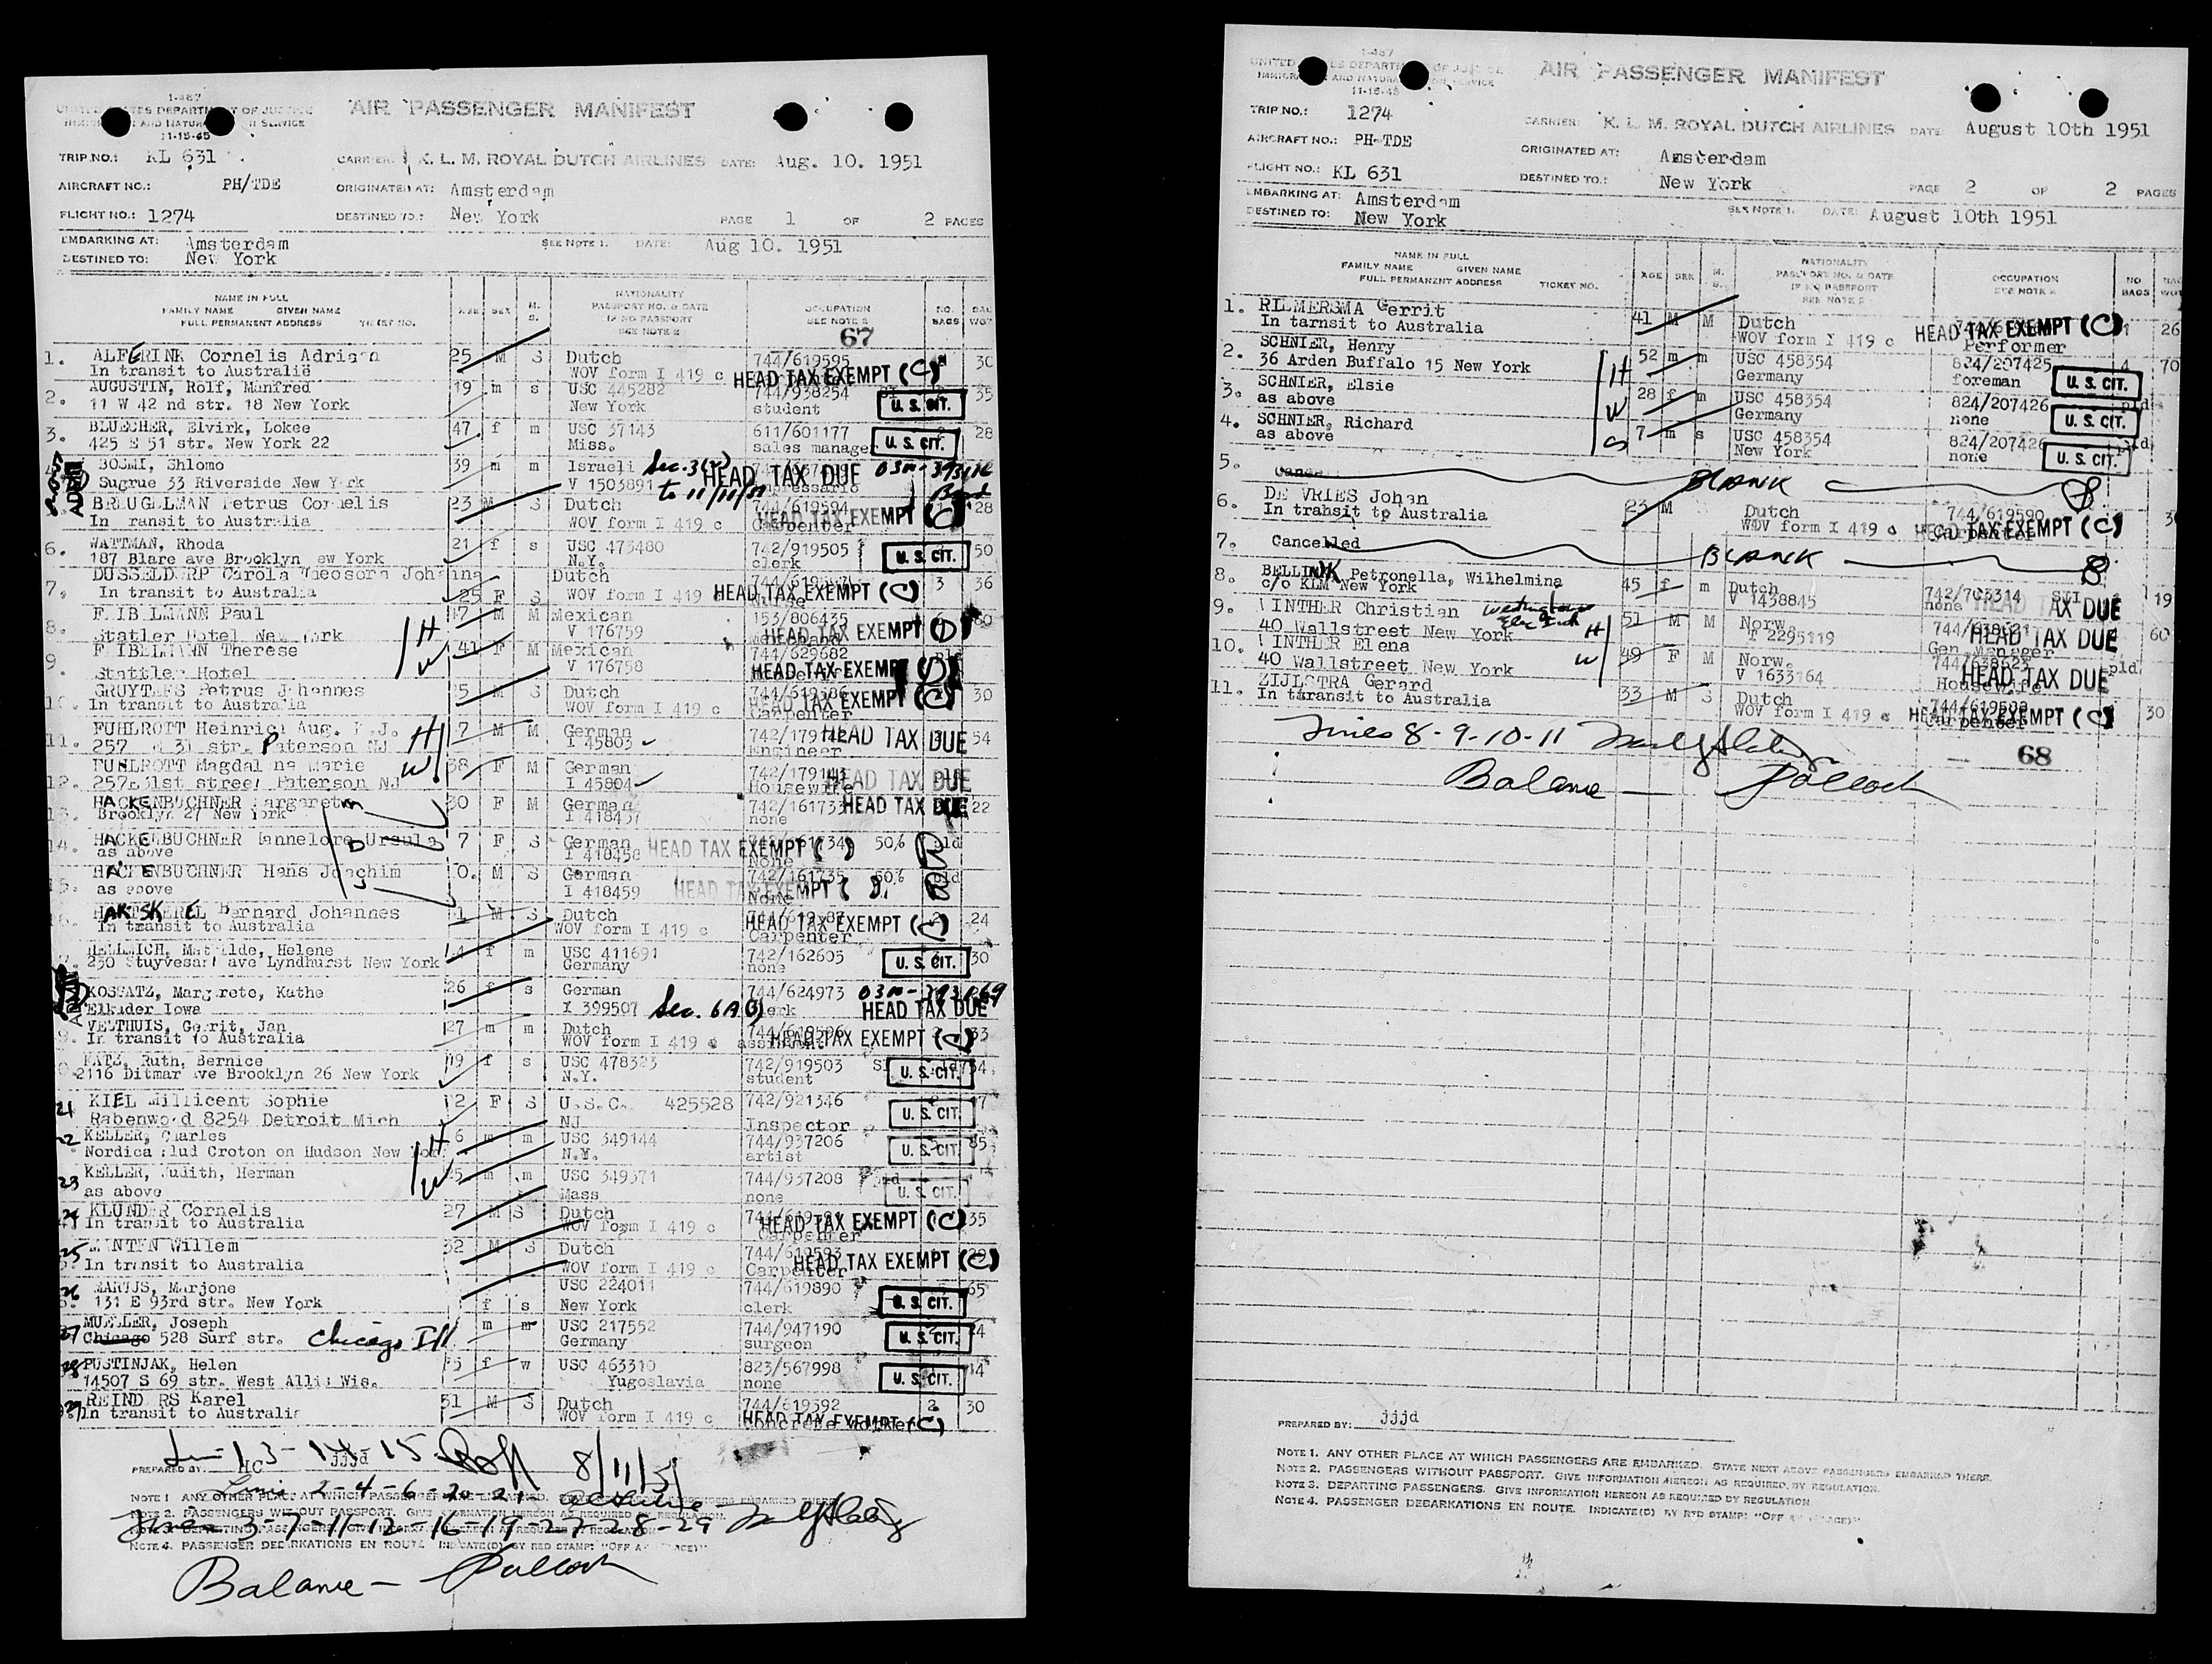 1-487
UNITED STATES DEPARTMENT OF JUSTICE
IMMIGRATION AND NATURALIZATION SERVICE
11-15-45
AIR PASSENGER MANIFEST
TRIP NO.: KL 631
CARRIER: K. L. M. ROYAL DUTCH AIRLINES DATE: Aug. 10. 1951
AIRCRAFT NO.: PH/TDE
ORIGINATED AT: Amsterdam
FLIGHT NO.: 1274
DESTINED TO.: New York
PAGE 1 OF 2 PAGES
EMBARKING AT: Amsterdam
SEE NOTE 1. DATE: Aug 10. 1951
DESTINED TO: New York
NAME IN FULL
FAMILY NAME GIVEN NAME
FULL PERMANENT ADDRESS TICKET NO.
AGE SEX M. S.
NATIONALITY
PASSPORT NO. & DATE
IF NO PASSPORT
SEE NOTE 2
OCCUPATION
SEE NOTE 2
NO. BAGS
67
1. ALFERINK Cornelis Adrian 25 M S Dutch 744/619595
In transit to Australië WOV form I 419 c HEAD TAX EXEMPT (C) 30
2. AUGUSTIN, Rolf, Manfred 19 m s USC 445282 744/938254
11 W 42 nd str. 18 New York New York student U. S. CIT. 35
3. BLUECHER, Elvirk, Lokee 47 f m USC 37143 611/601177
425 E 51 str. New York 22 Miss. sales manager U. S. CIT. 28
BOSMI, Shlomo 39 m m Israeli Sec. 3(2) HEAD TAX DUE
Sugrue 33 Riverside New York V 1503891 to 11/11/51 impressario Bond
BREUGELMAN Petrus Cornelis 23 M S Dutch 744/619594 28
In transit to Australia WOV form I 419 c Carpenter HEAD TAX EXEMPT (C)
6. WATTMAN, Rhoda 21 f s USC 473480 742/919505
187 Blare ave Brooklyn New York N.Y. clerk U. S. CIT. 50
7. DUSSELDORP Carola Theosora Johanna Dutch
In transit to Australia 25 F S WOV form I 419 c HEAD TAX EXEMPT (C) 3 36
8. FEIBELMANN Paul 47 M M Mexican 153/806435
Statler Hotel New York H V 176759 HEAD TAX EXEMPT 60
9. FEIBELMANN Therese 41 F M Mexican 744/629682
Stattler Hotel W V 176758 HEAD TAX EXEMPT
10. GRUYTERS Petrus Johannes M S Dutch 744/619586
In transit to Australia WOV form I 419 c Carpenter HEAD TAX EXEMPT (C) 30
11. FUHLROTT Heinrich Aug. F.J. H M M German HEAD TAX DUE 54
257 E 31 str. Paterson NJ I 45803 Engineer
12. FUHLROTT Magdalena Marie W 38 F M German 742/179143 HEAD TAX DUE
257 E 31st street Paterson NJ I 45804 Housewife
13. HACKENBUCHNER Margaretm 30 F M German 742/161733 HEAD TAX DUE 22
Brooklyn 27 New York I 418457 none
14. HACKENBUCHNER Hannelore Ursula D 7 F S German HEAD TAX EXEMPT ( ) 50%
as above I 418458 None
15. HACKENBUCHNER Hans Joachim S M S German 742/161735 50%
as above I 418459 HEAD TAX EXEMPT ( ) None
16. Bernard Johannes M S Dutch 24
In transit to Australia WOV form I 419 c Carpenter HEAD TAX EXEMPT
HELLMICH, Mathilde, Helene f m USC 411691 742/162605
250 Stuyvesant ave Lyndhurst New York Germany none U. S. CIT. 30
KOSSATZ, Margarete, Kathe 26 f s German 744/624973
Elkader Iowa I 399507 Sec. 6A(3) clerk HEAD TAX DUE
VELTHUIS, Gerrit, Jan 27 m m Dutch 744/619596
In transit to Australia WOV form I 419 c HEAD TAX EXEMPT (C) 33
KATZ, Ruth, Bernice 19 f s USC 478323 742/919503
2116 Ditmar ave Brooklyn 26 New York N.Y. student U. S. CIT. 34
21 KIEL Millicent Sophie F S U.S.C. 425528 742/921346
Rabenwood 8254 Detroit Mich NJ Inspector U. S. CIT.
22 KELLER, Charles H m m USC 349144 744/937206 85
Nordica Blud Croton on Hudson New York N.Y. artist U. S. CIT.
23 KELLER, Judith, Herman W m m USC 349371 744/937208
as above Mass none U. S. CIT.
24 KLUNDER Cornelis 27 M S Dutch
In transit to Australia WOV form I 419 c Carpenter HEAD TAX EXEMPT (C) 35
25 MANTEN Willem 32 M S Dutch 744/619593
In transit to Australia WOV form I 419 c Carpenter HEAD TAX EXEMPT (C)
26 MARJUS, Marjone USC 224011 744/619890 65
131 E 93rd str. New York f s New York clerk U. S. CIT.
27 MUELLER, Joseph m m USC 217552 744/947190
Chicago 528 Surf str. Chicago Ill Germany surgeon U. S. CIT. 24
28 PUSTINJAK, Helen f w USC 463310 823/567998
14507 S 69 str. West Allis Wis. Yugoslavia none U. S. CIT. 14
29 REINDERS Karel 31 M S Dutch 744/619592 2 30
In transit to Australia WOV form I 419 c concrete worker HEAD TAX EXEMPT (C)
13-14-15 8/11/51
PREPARED BY: HC jjjd
Lines 2-4-6-20-21
NOTE 1 ANY OTHER PLACE AT WHICH PASSENGERS ARE EMBARKED.
NOTE 2. PASSENGERS WITHOUT PASSPORT. GIVE INFORMATION HEREON AS REQUIRED BY REGULATION.
Lines 3-7-11-12-16-19-27-28-29
NOTE 4. PASSENGER DEBARKATIONS EN ROUTE. INDICATE(D) BY RED STAMP: "OFF AT (PLACE)"
Balance - Pollock
1-487
UNITED STATES DEPARTMENT OF JUSTICE
IMMIGRATION AND NATURALIZATION SERVICE
11-15-45
AIR PASSENGER MANIFEST
TRIP NO.: 1274
CARRIER: K. L. M. ROYAL DUTCH AIRLINES DATE: August 10th 1951
AIRCRAFT NO.: PH-TDE
ORIGINATED AT: Amsterdam
FLIGHT NO.: KL 631
DESTINED TO.: New York
PAGE 2 OF 2 PAGES
EMBARKING AT: Amsterdam
SEE NOTE 1. DATE: August 10th 1951
DESTINED TO: New York
NAME IN FULL
FAMILY NAME GIVEN NAME
FULL PERMANENT ADDRESS TICKET NO.
AGE SEX M. S.
NATIONALITY
PASSPORT NO. & DATE
IF NO PASSPORT
SEE NOTE 2
OCCUPATION
SEE NOTE 2
NO BAGS
1. REMERSMA Gerrit 41 M M Dutch
In tarnsit to Australia WOV form I 419 c HEAD TAX EXEMPT (C) 26
Performer
2. SCHNIER, Henry 52 m m USC 458354 824/207425 4 70
36 Arden Buffalo 15 New York H Germany foreman U. S. CIT.
3. SCHNIER, Elsie 28 f m USC 458354 824/207426 pld
as above W Germany none U. S. CIT.
4. SCHNIER, Richard 7 m s USC 458354 824/207426
as above S New York none U. S. CIT.
5. BLANK
6. DE VRIES Johan 23 M Dutch 744/619590
In transit to Australia WOV form I 419 c HEAD TAX EXEMPT (C)
7. Cancelled BLANK
8. BELLINK Petronella, Wilhelmina 45 f m Dutch
c/o KLM New York V 1438845 none HEAD TAX DUE 19
9. WINTHER Christian Westinghouse 51 M M Norw.
40 Wallstreet New York H T 2295119 Gen Manager HEAD TAX DUE 60
10. WINTHER Elena 49 F M Norw.
40 Wallstreet New York W V 1633164 Housewife HEAD TAX DUE pld
11. ZIJLSTRA Gerard 33 M S Dutch
In taransit to Australia WOV form I 419 c Carpenter HEAD TAX EXEMPT (C) 30
Lines 8-9-10-11
68
Balance — Pollock
PREPARED BY: jjjd
NOTE 1. ANY OTHER PLACE AT WHICH PASSENGERS ARE EMBARKED. STATE NEXT ABOVE PASSENGERS EMBARKED THERE.
NOTE 2. PASSENGERS WITHOUT PASSPORT. GIVE INFORMATION HEREON AS REQUIRED BY REGULATION.
NOTE 3. DEPARTING PASSENGERS. GIVE INFORMATION HEREON AS REQUIRED BY REGULATION
NOTE 4. PASSENGER DEBARKATIONS EN ROUTE. INDICATE(D) BY RED STAMP: "OFF AT (PLACE)"